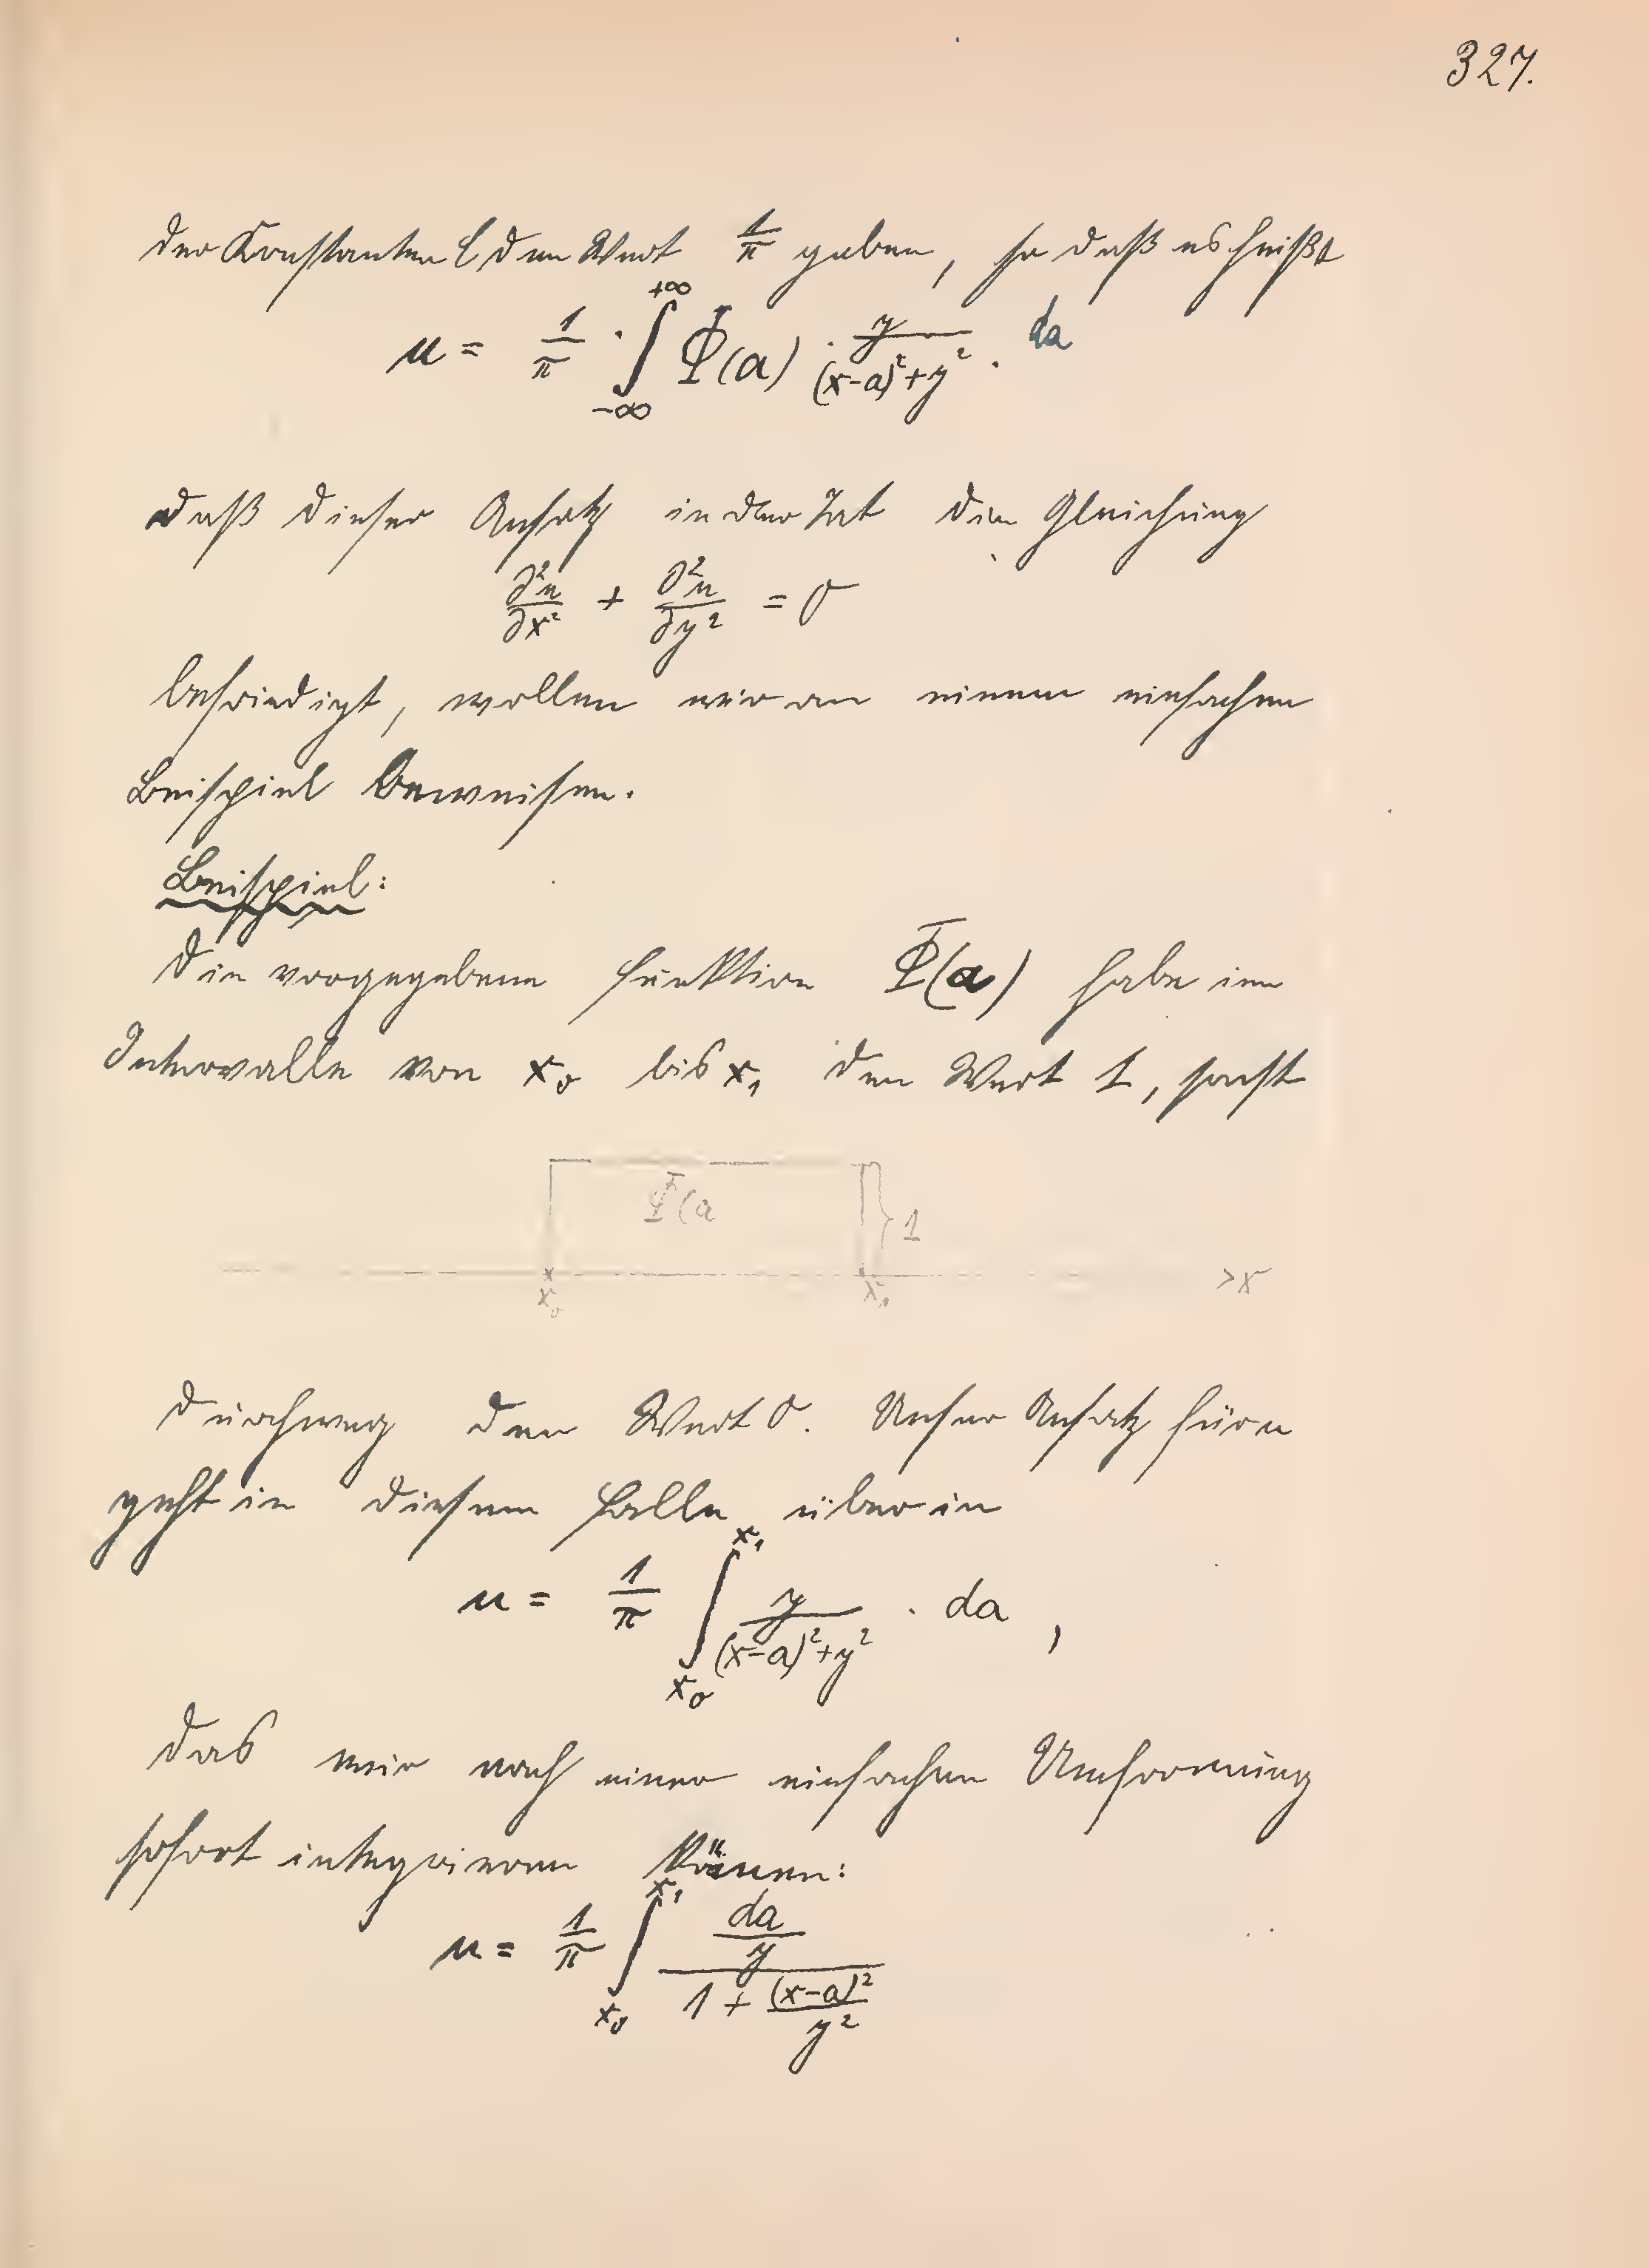 327.
der Konstanten C den Wert 1/π geben, so daß es heißt
u = 1/π · ∫_{-∞}^{+∞} Φ(a) · y/((x-a)²+y²) · da
daß dieser Ansatz in der Tat die Gleichung
∂²u/∂x² + ∂²u/∂y² = 0
befriedigt, wollen wir an einem einfachen
Beispiel beweisen.
Beispiel:
Die vorgegebene Funktion Φ(a) habe im
Intervalle von x₀ bis x₁ den Wert 1, sonst
Φ(a
1
x₀ x₁ >x
durchweg den Wert 0. Unser Ansatz für u
geht in diesem Falle über in
u = 1/π ∫_{x₀}^{x₁} y/((x-a)²+y²) · da ,
das wir nach einer einfachen Umformung
sofort integrieren können:
u = 1/π ∫_{x₀}^{x₁} (da/y)/(1 + (x-a)²/y²)